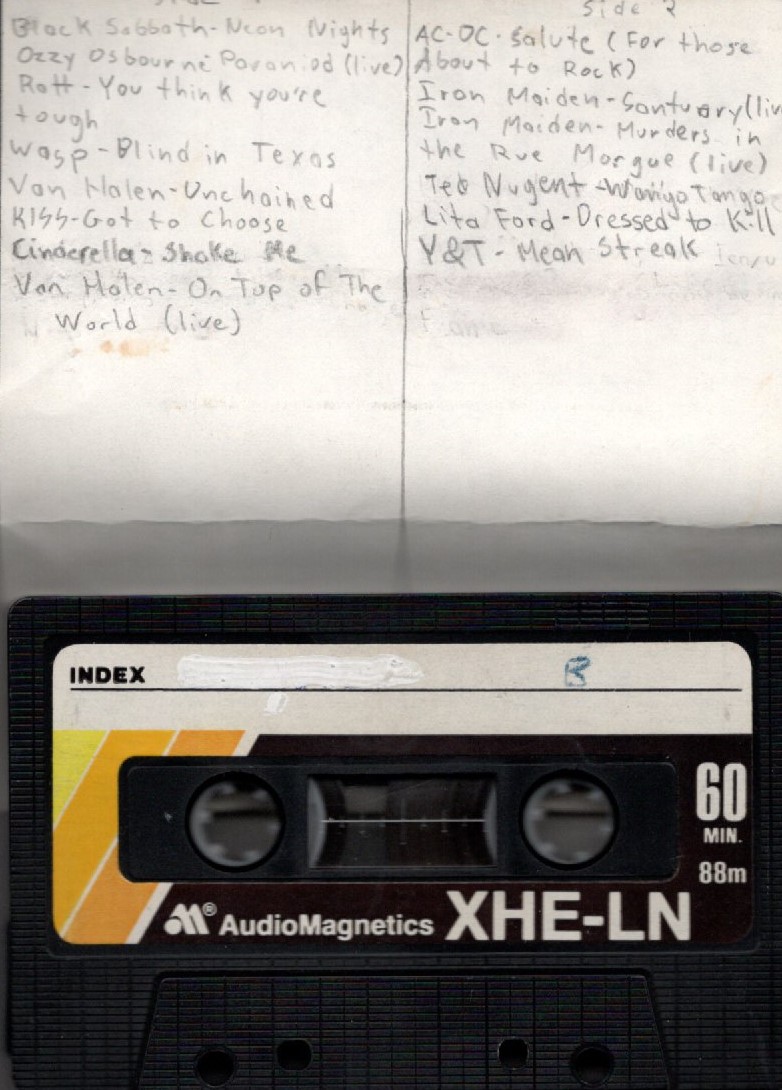 Black Sabbath-Neon Nights
Ozzy Osbourne Paraniod (live)
Ratt-You think you're
tough
Wasp-Blind in Texas
Van Halen-Unchained
KISS-Got to Choose
Cinderella-Shake Me
Van Halen-On Top of The
World (live)
Side 2
AC-DC-Salute (For those
About to Rock)
Iron Maiden-Santuary (liv
Iron Maiden-Murders in
the Rue Morgue (live)
Ted Nugent-Wango Tango
Lita Ford-Dressed to Kill
Y&T-Mean Streak
INDEX
B
60
MIN.
88m
AudioMagnetics XHE-LN